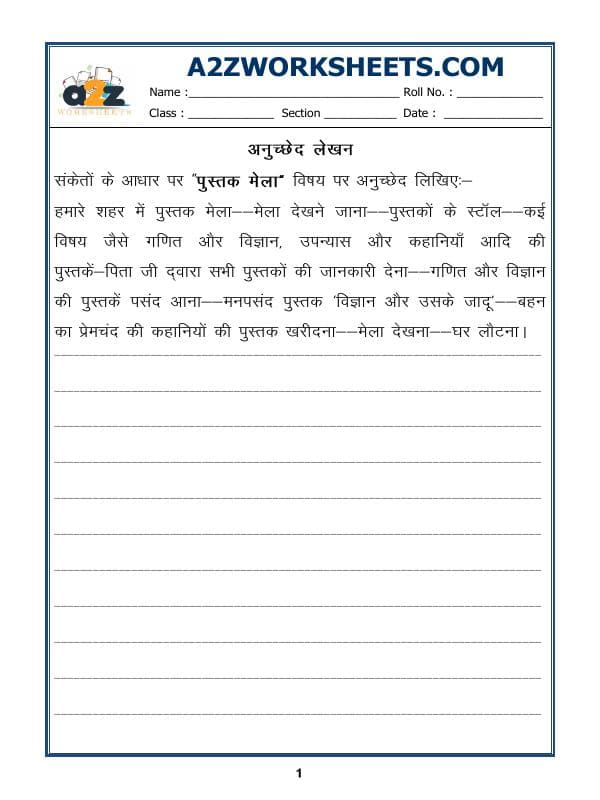 A2ZWORKSHEETS.COM
a2z
WORKSHEETS
Name :______________________________ Roll No. : ____________
Class : ____________ Section __________ Date : ______________
अनुच्छेद लेखन
संकेतों के आधार पर "पुस्तक मेला" विषय पर अनुच्छेद लिखिए:–
हमारे शहर में पुस्तक मेला––मेला देखने जाना––पुस्तकों के स्टॉल––कई
विषय जैसे गणित और विज्ञान, उपन्यास और कहानियाँ आदि की
पुस्तकें–पिता जी द्वारा सभी पुस्तकों की जानकारी देना––गणित और विज्ञान
की पुस्तकें पसंद आना––मनपसंद पुस्तक 'विज्ञान और उसके जादू'––बहन
का प्रेमचंद की कहानियों की पुस्तक खरीदना––मेला देखना––घर लौटना।
1